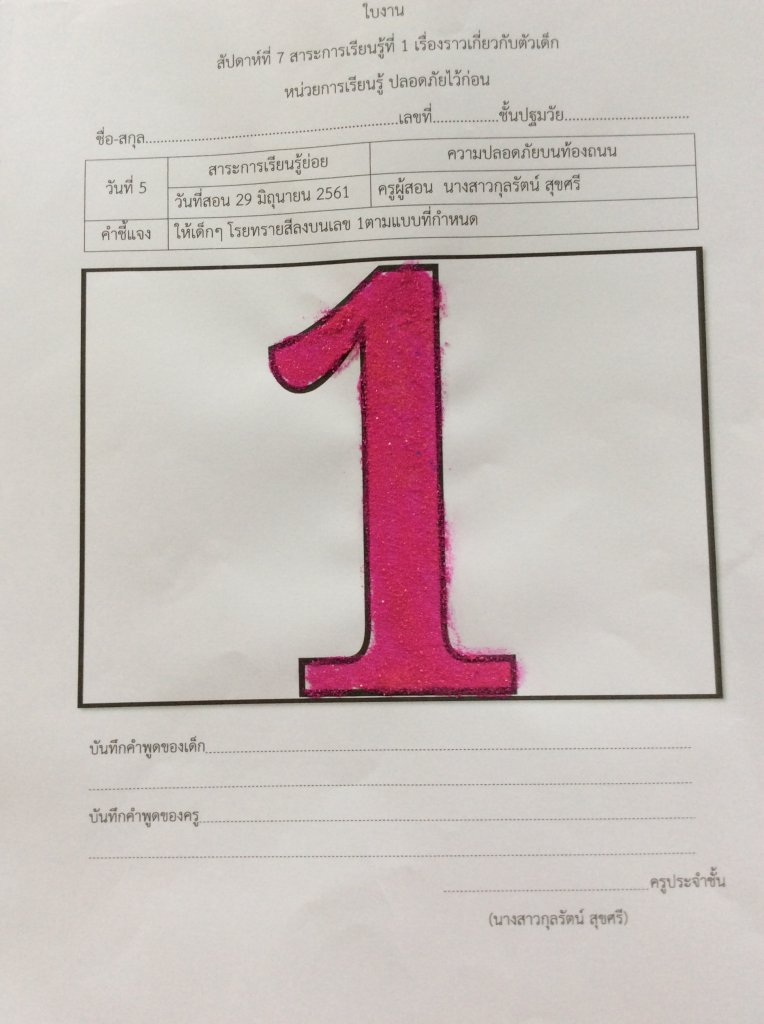 ใบงาน
สัปดาห์ที่ 7 สาระการเรียนรู้ที่ 1 เรื่องราวเกี่ยวกับตัวเด็ก
หน่วยการเรียนรู้ ปลอดภัยไว้ก่อน
ชื่อ-สกุล....................................................เลขที่.................ชั้นปฐมวัย................................
วันที่ 5 สาระการเรียนรู้ย่อย ความปลอดภัยบนท้องถนน
วันที่สอน 29 มิถุนายน 2561 ครูผู้สอน นางสาวกุลรัตน์ สุขศรี
คำชี้แจง ให้เด็กๆ โรยทรายสีลงบนเลข 1ตามแบบที่กำหนด
1
บันทึกคำพูดของเด็ก
บันทึกคำพูดของครู
ครูประจำชั้น
(นางสาวกุลรัตน์ สุขศรี)